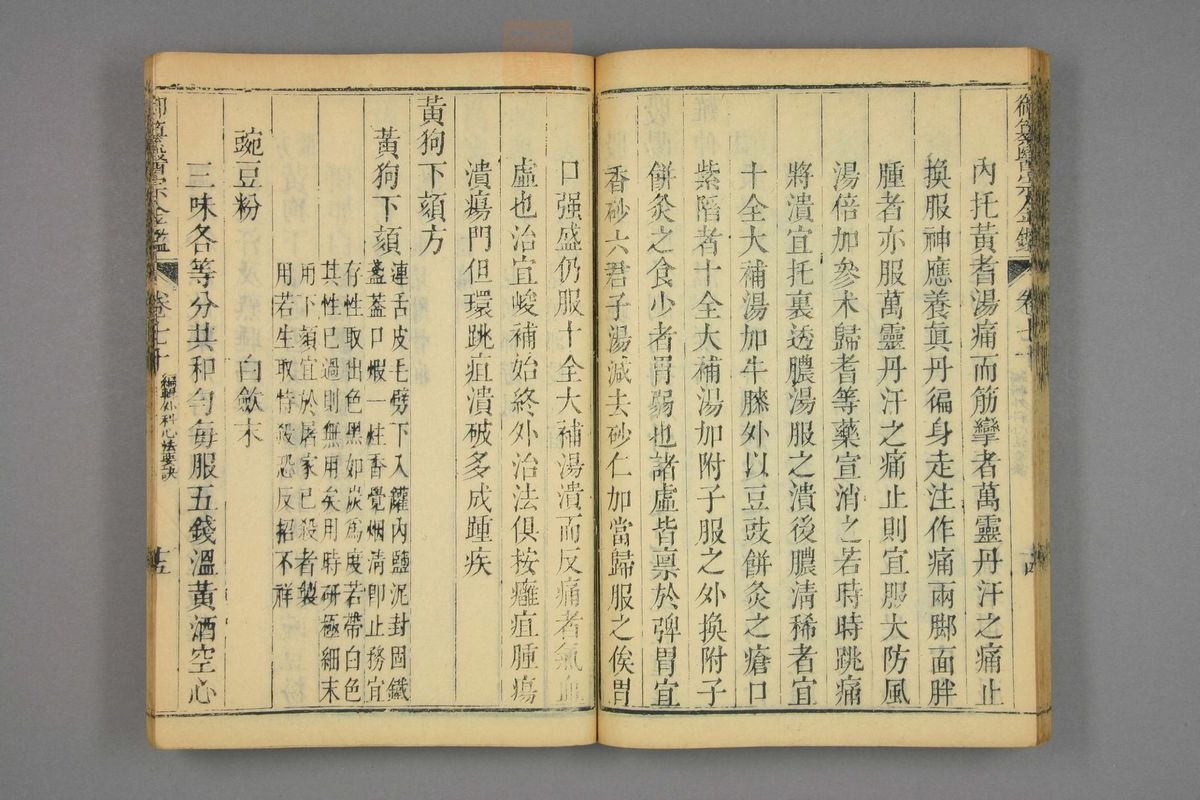 內托黃耆湯痛而筋攣者萬靈丹汗之痛止
換服神應養眞丹徧身走注作痛兩脚面胖
腫者亦服萬靈丹汗之痛止則宜服大防風
湯倍加參术歸耆等藥宣消之若時時跳痛
將潰宜托裏透膿湯服之潰後膿淸稀者宜
十全大補湯加牛膝外以豆豉餅灸之瘡口
紫陷者十全大補湯加附子服之外換附子
餅灸之食少者胃弱也諸虛皆禀於脾胃宜
香砂六君子湯減去砂仁加當歸服之俟胃
口强盛仍服十全大補湯潰而反痛者氣血
虛也治宜峻補始終外治法俱按癰疽腫瘍
潰瘍門但環跳疽潰破多成踵疾
黃狗下頦方
黃狗下頦
連舌皮毛劈下入罐內鹽泥封固鐵
盞蓋口煆一炷香覺烟淸卽止務宜
存性取出色黑如炭爲度若帶白色
其性已過則無用矣用時研極細末
用下頦宜於屠家已殺者製
用若生取特殺恐反招不祥
豌豆粉 白斂末
三味各等分共和勻每服五錢溫黃酒空心
御纂醫宗金鑑
卷七十
編輯外科心法要訣
十五
御纂醫宗金鑑
卷七十